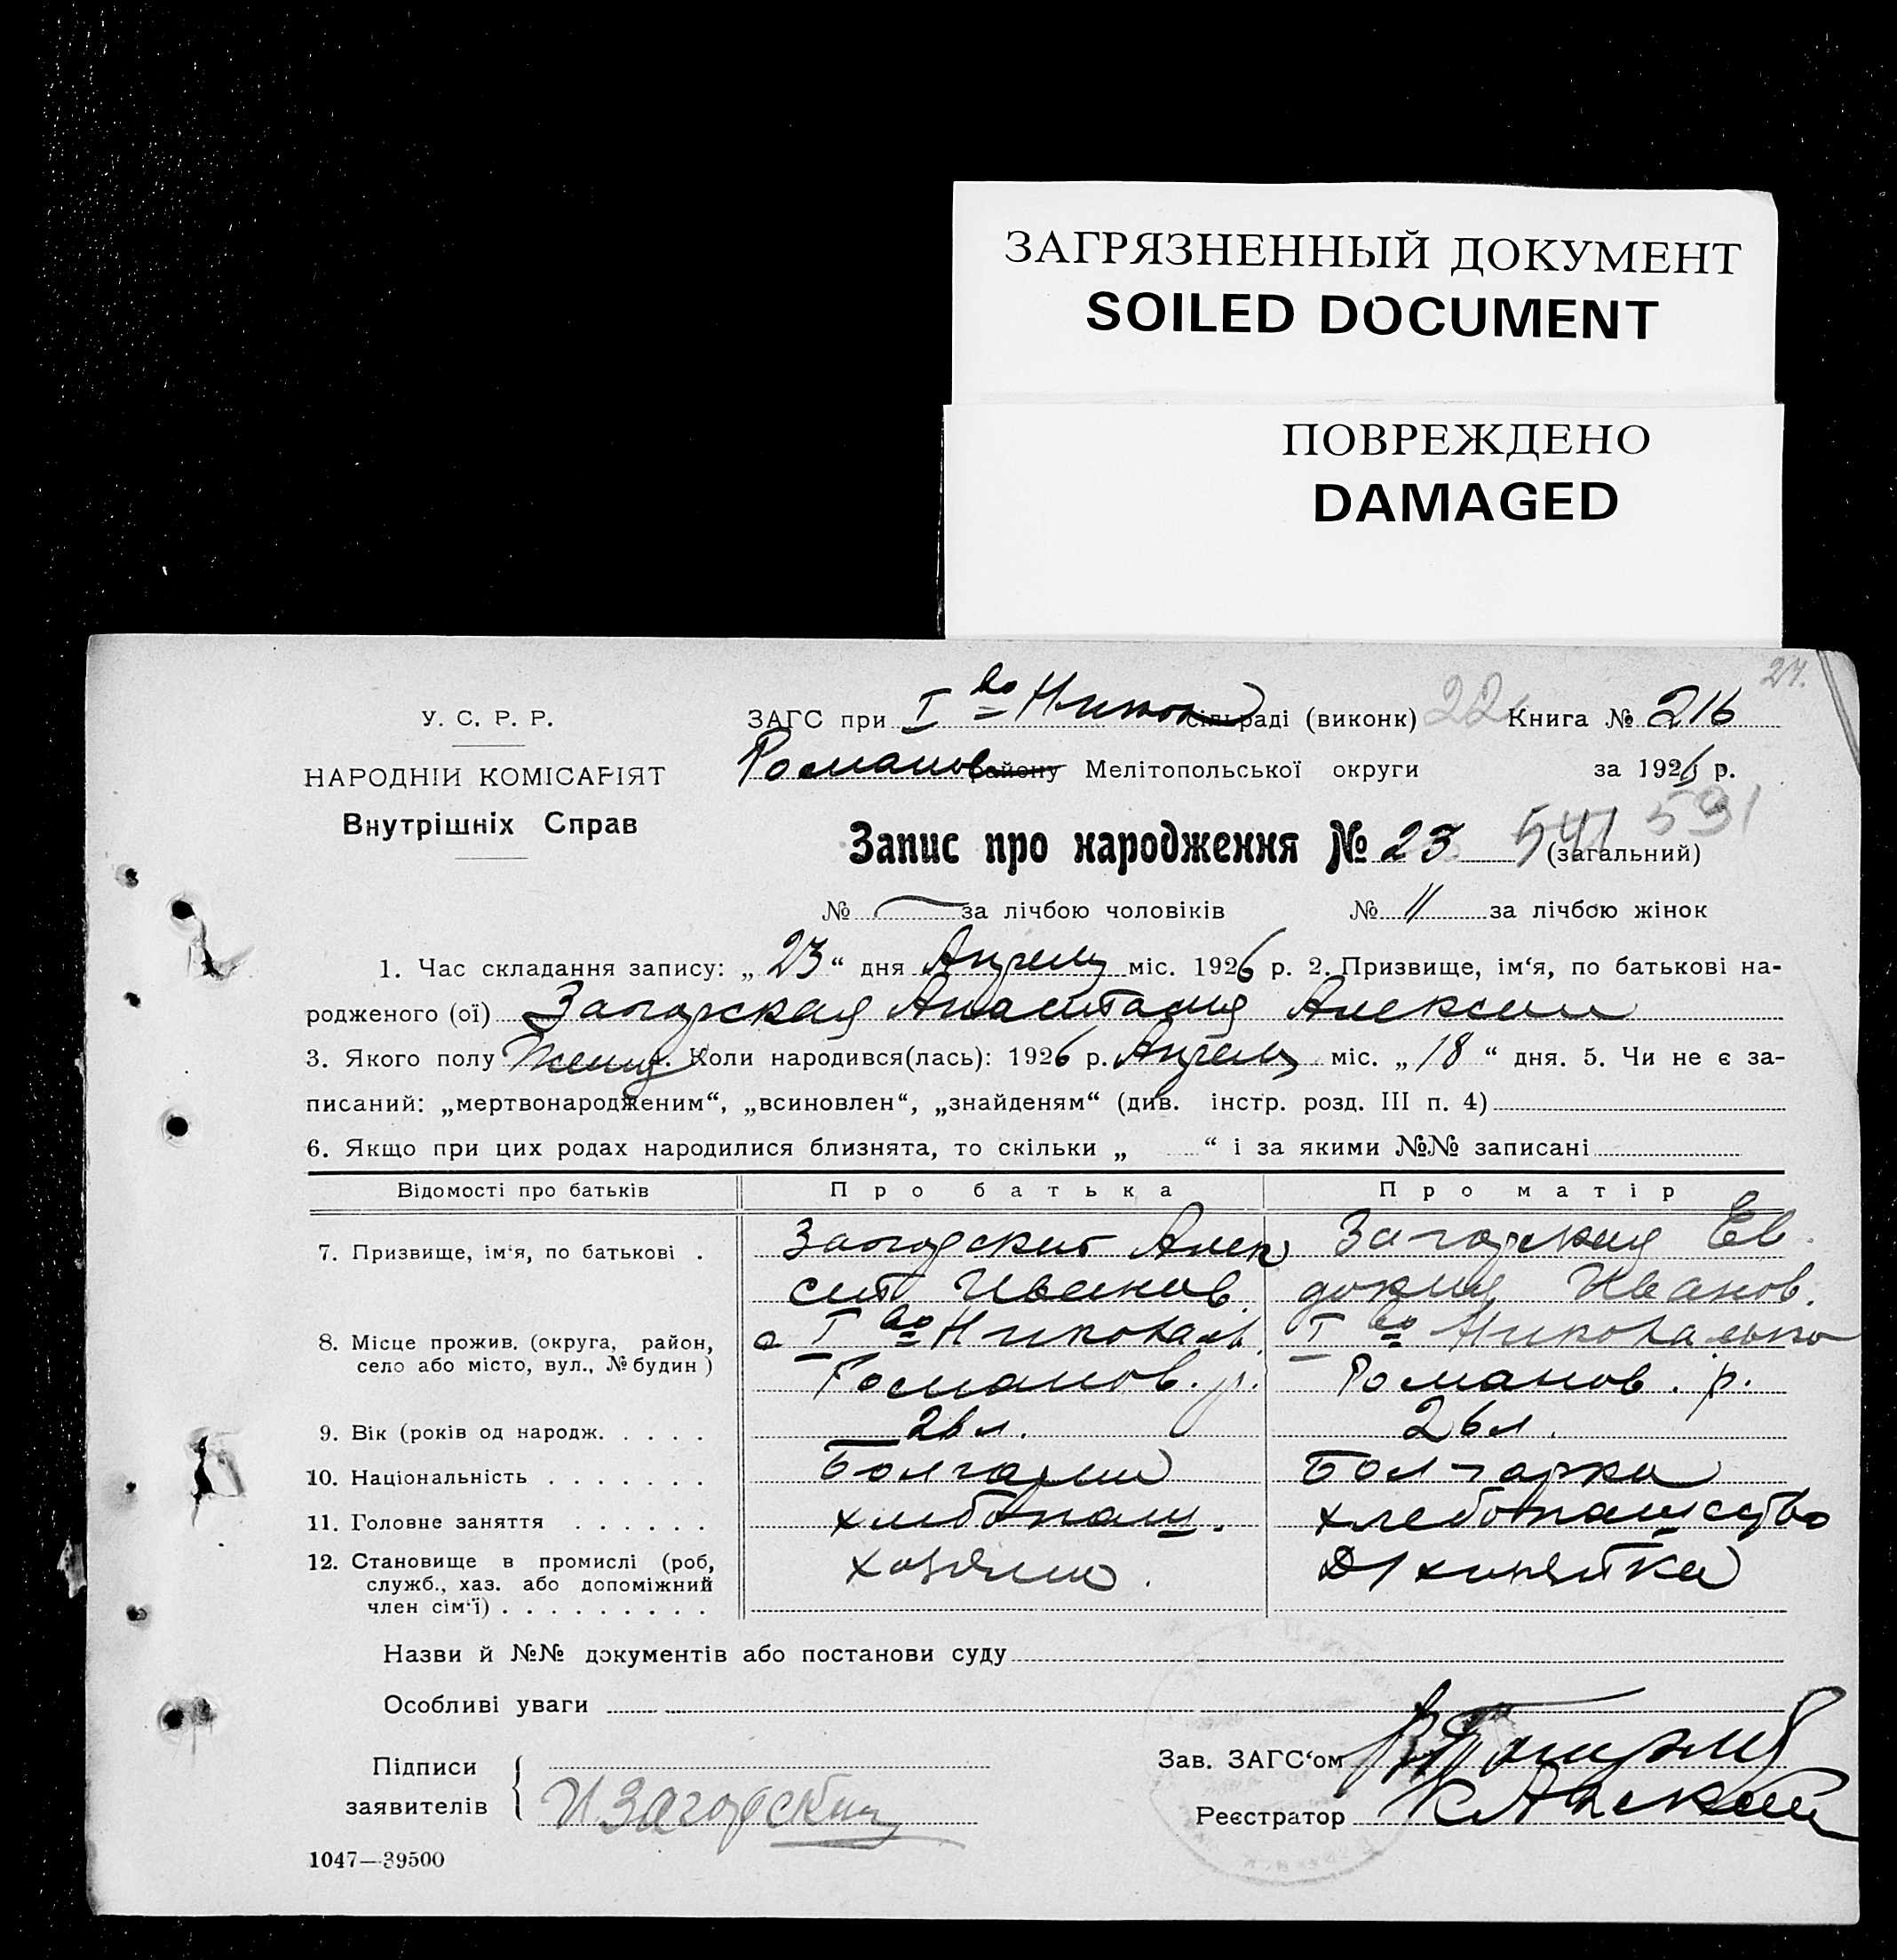 ЗАГРЯЗНЕННЫЙ ДОКУМЕНТ
SOILED DOCUMENT
ПОВРЕЖДЕНО
DAMAGED
24.
У. С. Р. Р.
ЗАГС при I во Никол сільраді (виконк) 22 Книга № 216
НАРОДНІЙ КОМІСАРІЯТ
Романов району Мелітопольської округи за 1926 р.
Внутрішніх Справ
Запис про народження № 23 541 591 (загальний)
№ за лічбою чоловіків № 11 за лічбою жінок
1. Час складання запису: „ 23 “ дня Апреля міс. 1926 р. 2. Призвище, ім‘я, по батькові на-
родженого (ої) Загорская Анастасия Алексеи
3. Якого полу Женщ. Коли народився(лась): 1926 р. Апреля міс. „ 18 “ дня. 5. Чи не є за-
писаний: „мертвонародженим“, „всиновлен“, „знайденям“ (див. інстр. розд. III п. 4)
6. Якщо при цих родах народилися близнята, то скільки „ “ і за якими №№ записані
Відомості про батьків Про батька Про матір
7. Призвище, ім‘я, по батькові . Загорский Алек Загорская Ев
сей Иванов. докия Иванов.
8. Місце прожив. (округа, район, село або місто, вул., № будин) с I во Николаев. I во Николаевка
Романов. р. Романов. р.
9. Вік (років од народж. . . . . 26 л. 26 л.
10. Національність . . . . . . . Болгарин Болгарка
11. Головне заняття . . . . . . хлебопаш. хлебопашество
12. Становище в промислі (роб, служб., хаз. або допоміжний член сім‘ї) . . . . . . . . . хозяин.
Назви й №№ документів або постанови суду
Особливі уваги
Підписи заявителів И Загорский
Зав. ЗАГС‘ом
Реєстратор
1047—39500